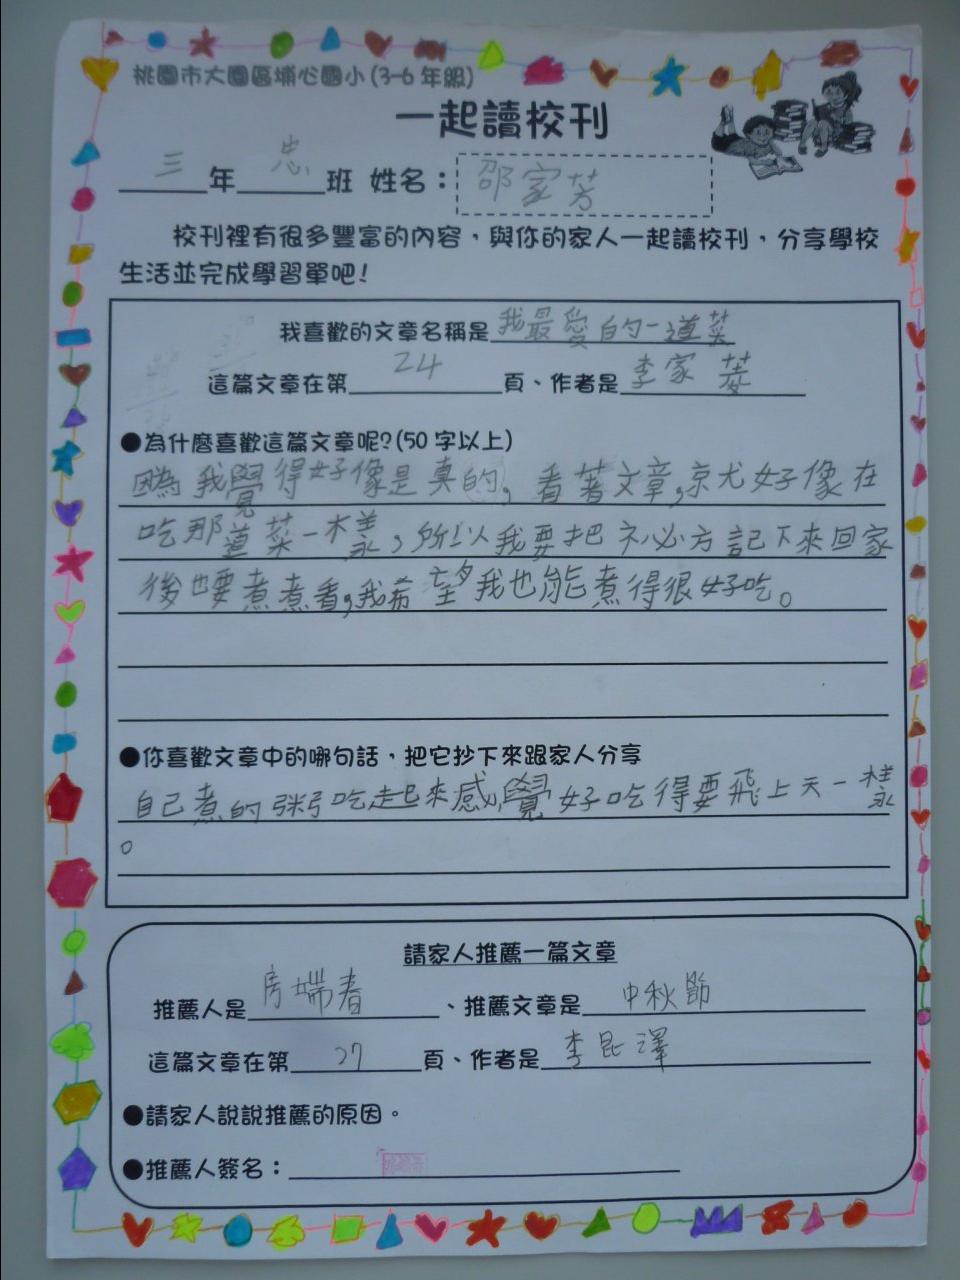 桃園市大園區埔心國小(3-6年級)
一起讀校刊
三年忠班 姓名：邵家芳
校刊裡有很多豐富的內容，與你的家人一起讀校刊，分享學校
生活並完成學習單吧！
我喜歡的文章名稱是我最愛的一道菜
這篇文章在第24頁、作者是李家棻
●為什麼喜歡這篇文章呢?(50字以上)
因為我覺得好像是真的，看著文章，就好像在
吃那道菜一樣，所以我要把祕方記下來回家
後也要煮煮看，我希望我也能煮得很好吃。
●你喜歡文章中的哪句話，把它抄下來跟家人分享
自己煮的粥吃起來感覺好吃得要飛上天一樣
。
請家人推薦一篇文章
推薦人是房端春、推薦文章是中秋節
這篇文章在第27頁、作者是李昆澤
●請家人說說推薦的原因。
●推薦人簽名：